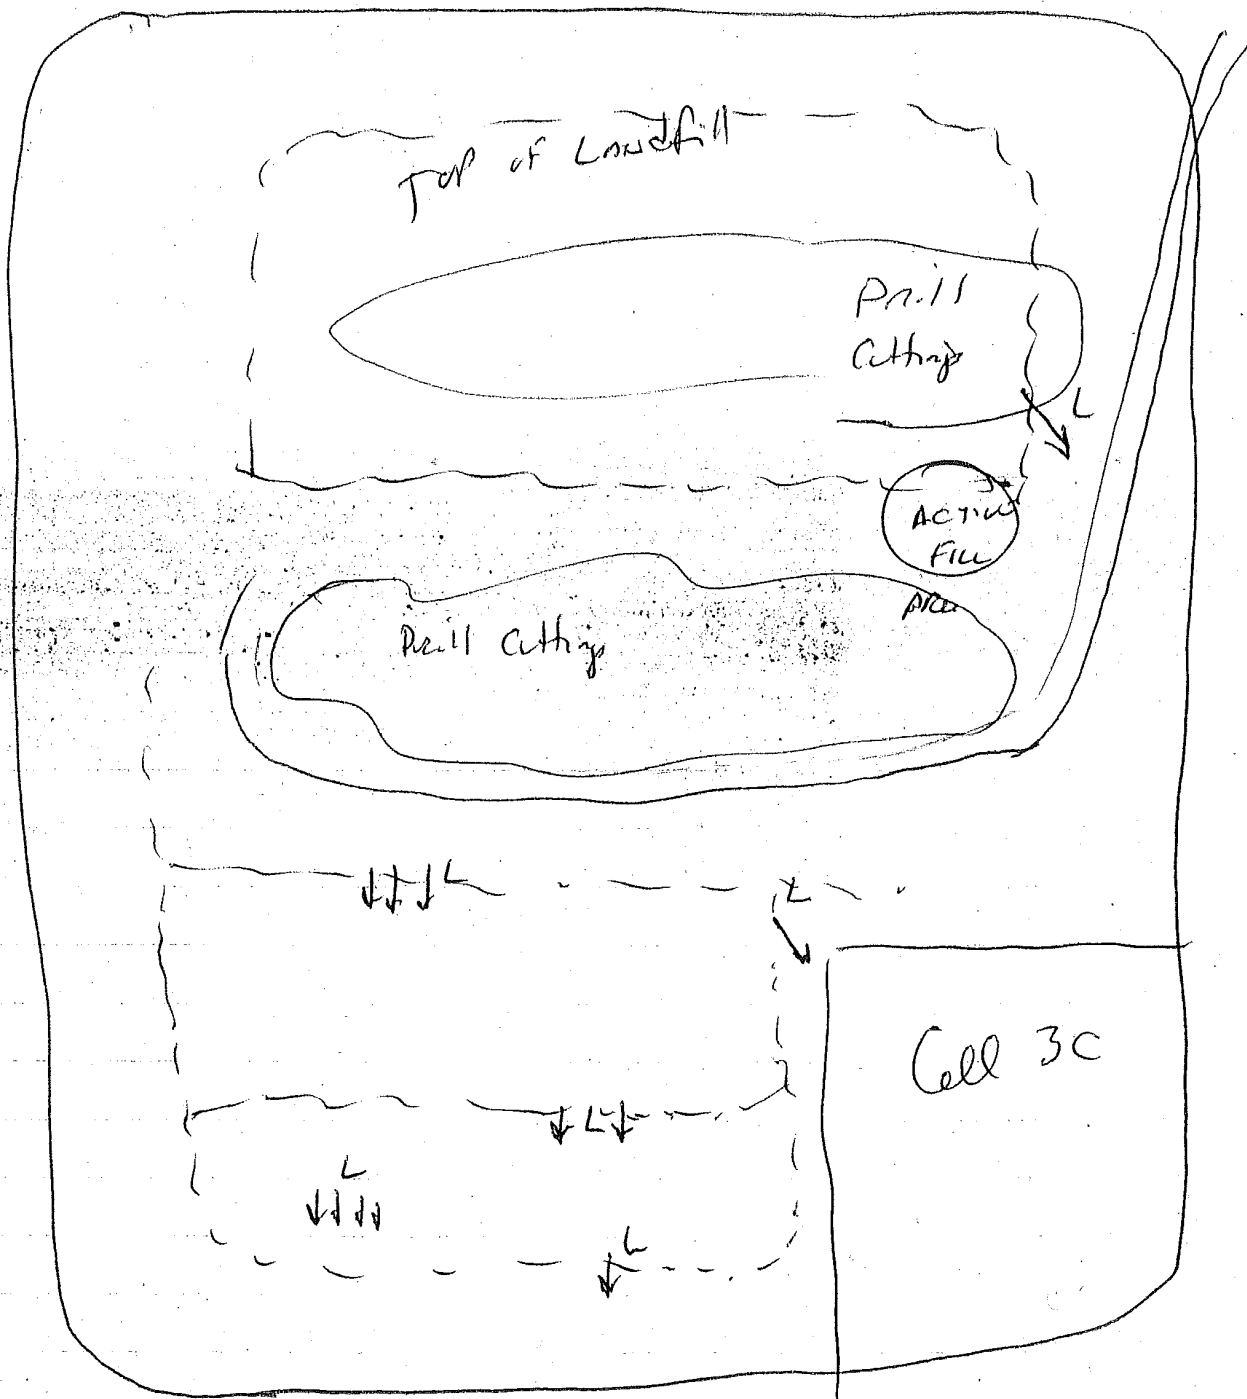 Top of Landfill
Drill
Cuttings
L
ACTIVE
FILL
AREA
Drill Cuttings
L
L
Cell 3C
L
L
L